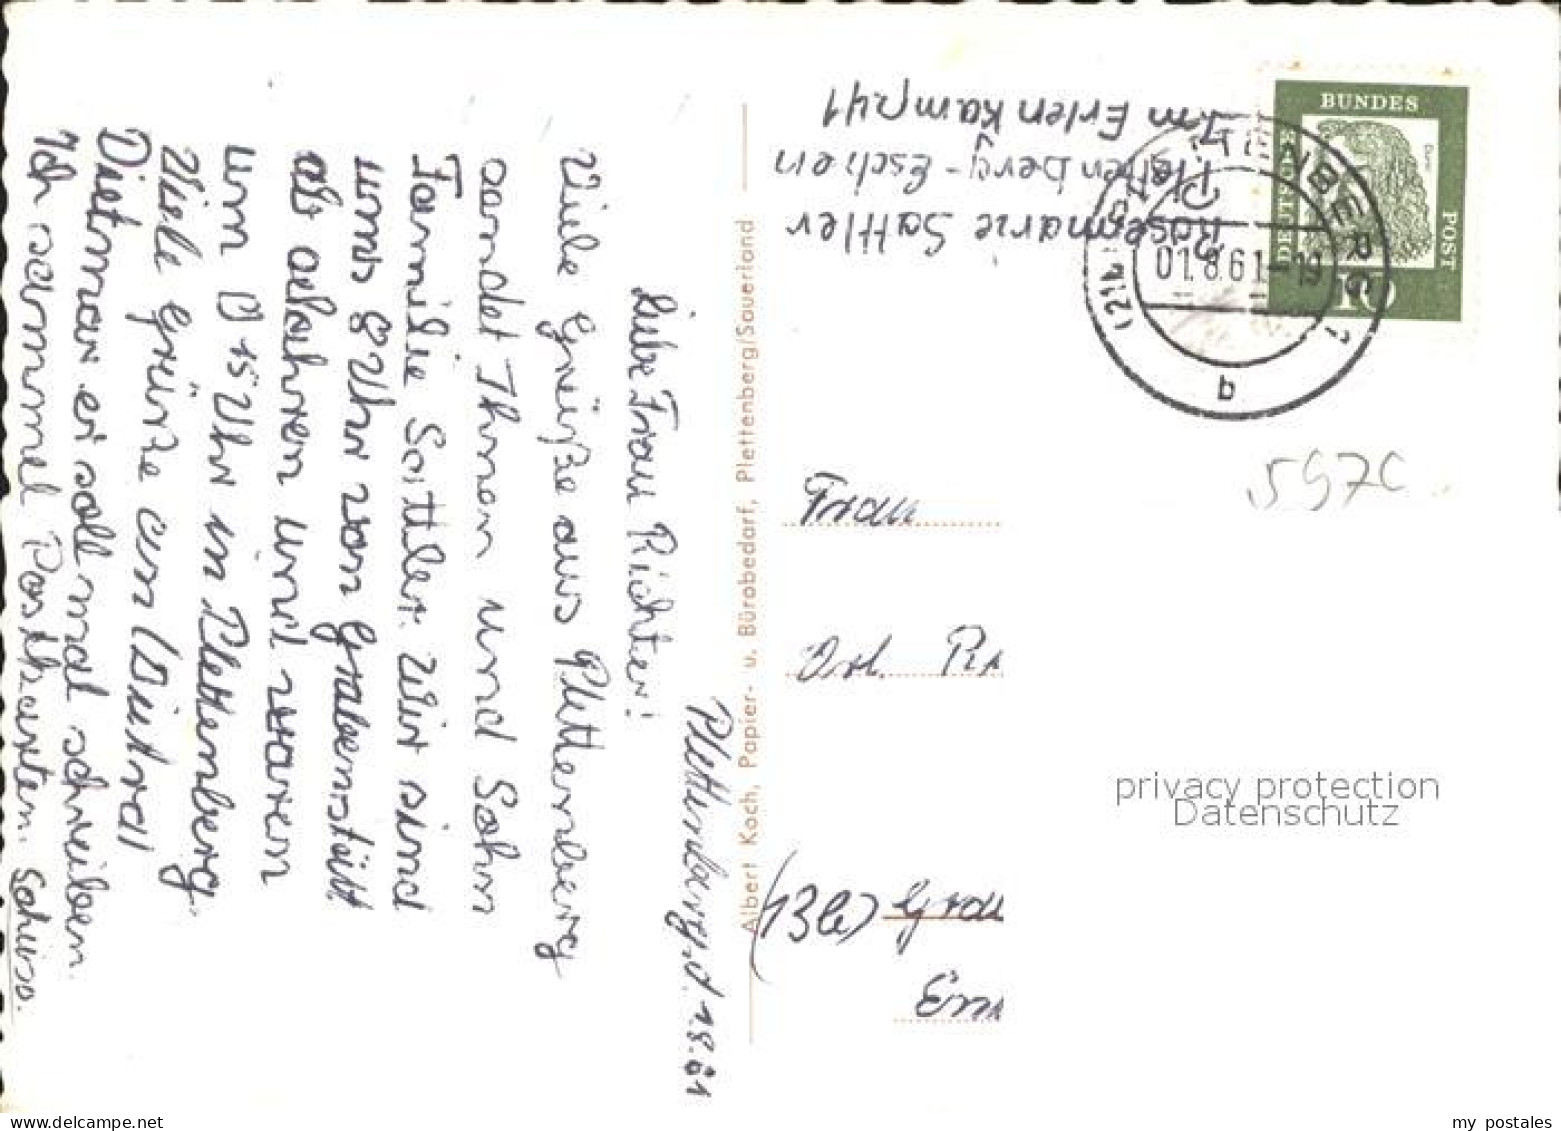 Plettenberg, d. 1.8.61
Liebe Frau Richter!
Viele Grüße aus Plettenberg
sendet Ihnen und Sohn
Familie Sattler. Wir sind
um 8 Uhr von Grabenstätt
abgefahren und waren
um 15 Uhr in Plettenberg
Viele Grüße an
Dietmar er soll mal schreiben.
Ich sammel Postkarten. Schluss.
Albert Koch, Papier- u. Bürobedarf, Plettenberg/Sauerland
Rosemarie Sattler
Plettenberg-Eschen
Im Erlenkamp 41
BUNDES
POST
DEUTSCHE
10
PLETTENBERG
(21b)
01.8.61-19
b
597c
Frau
(13b)
privacy protection
Datenschutz
my postales